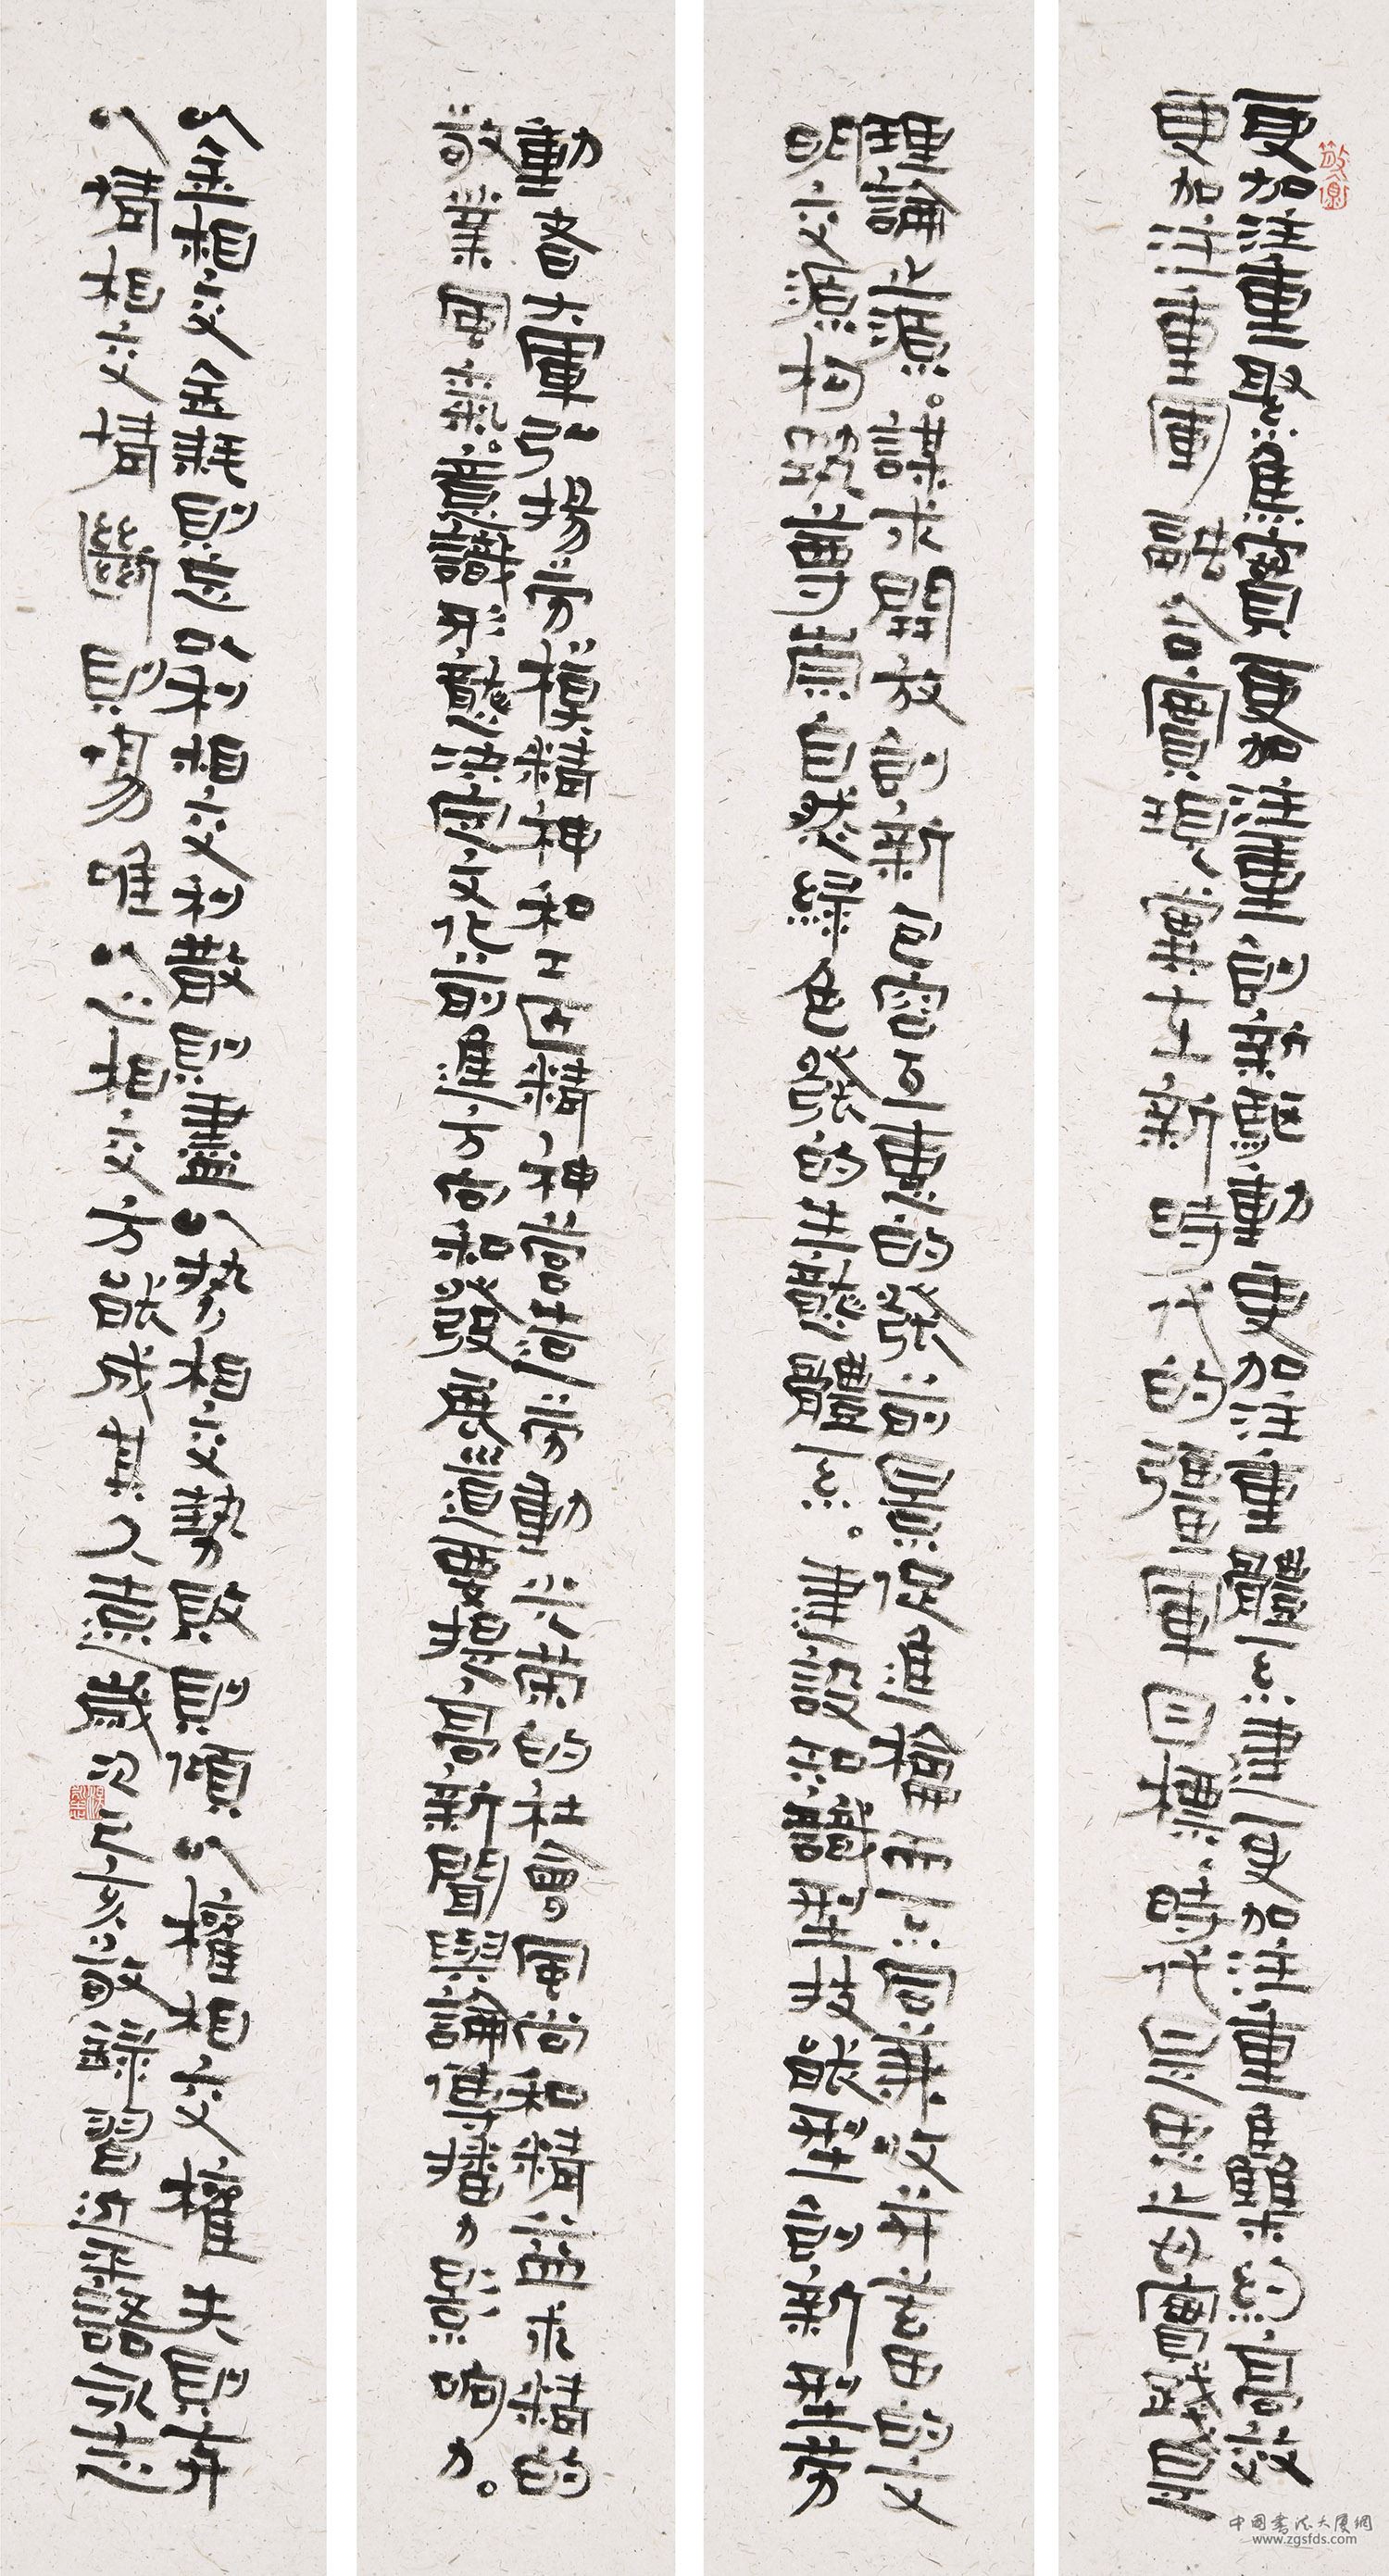 更加注重聚焦實戰更加注重創新驅動更加注重體系建設更加注重集約高效
更加注重軍民融合實現黨在新時代的強軍目標時代是思想之母實踐是
理論之源。謀求開放創新包容互惠的發展前景促進和而不同兼收并蓄的文
明交流構筑尊崇自然綠色發展的生態體系。建設知識型技能型創新型勞
動者大軍弘揚勞模精神和工匠精神營造勞動光榮的社會風尚和精益求精的
敬業風氣。意識形態決定文化前進方向和發展道路要提高新聞輿論傳播力影響力。
以金相交金耗則忘以利相交利散則盡以勢相交勢敗則傾以權相交權失則弃
以情相交情斷則傷唯以心相交方能成其久遠歲次己亥敬錄習近平語永志
中国書法大厦網
www.zgsfds.com